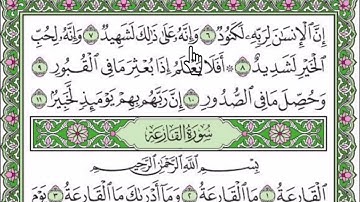 إِنَّ ٱلْإِنسَٰنَ لِرَبِّهِۦ لَكَنُودٌ ٦ وَإِنَّهُۥ عَلَىٰ ذَٰلِكَ لَشَهِيدٌ ٧ وَإِنَّهُۥ لِحُبِّ
ٱلْخَيْرِ لَشَدِيدٌ ٨ أَفَلَا يَعْلَمُ إِذَا بُعْثِرَ مَا فِى ٱلْقُبُورِ ٩
وَحُصِّلَ مَا فِى ٱلصُّدُورِ ١٠ إِنَّ رَبَّهُم بِهِمْ يَوْمَئِذٍ لَّخَبِيرٌ ١١
سُورَةُ ٱلْقَارِعَة
بِسْمِ ٱللَّهِ ٱلرَّحْمَٰنِ ٱلرَّحِيمِ
ٱلْقَارِعَةُ ١ مَا ٱلْقَارِعَةُ ٢ وَمَآ أَدْرَىٰكَ مَا ٱلْقَارِعَةُ ٣ يَوْمَ